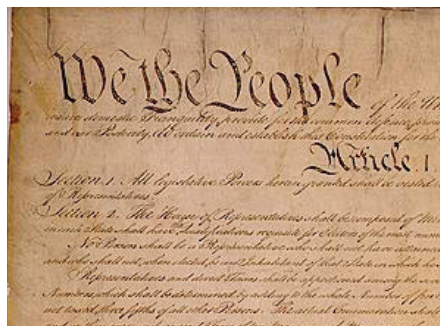 We the People of the
insure domestic Tranquility, provide for the common defence,
and our Posterity, do ordain and establish this Constitution for the
Article. I.
Section. 1. All legislative Powers herein granted shall be vested
of Representatives.
Section. 2. The House of Representatives shall be composed of
in each State shall have Qualifications requisite for Electors of the most
No Person shall be a Representative who shall not have
and who shall not, when elected, be an Inhabitant of that State in which
Representatives and direct Taxes shall be apportioned among the
Numbers, which shall be determined by adding to the whole Number of
not taxed, three fifths of all other Persons. The actual Enumeration shall